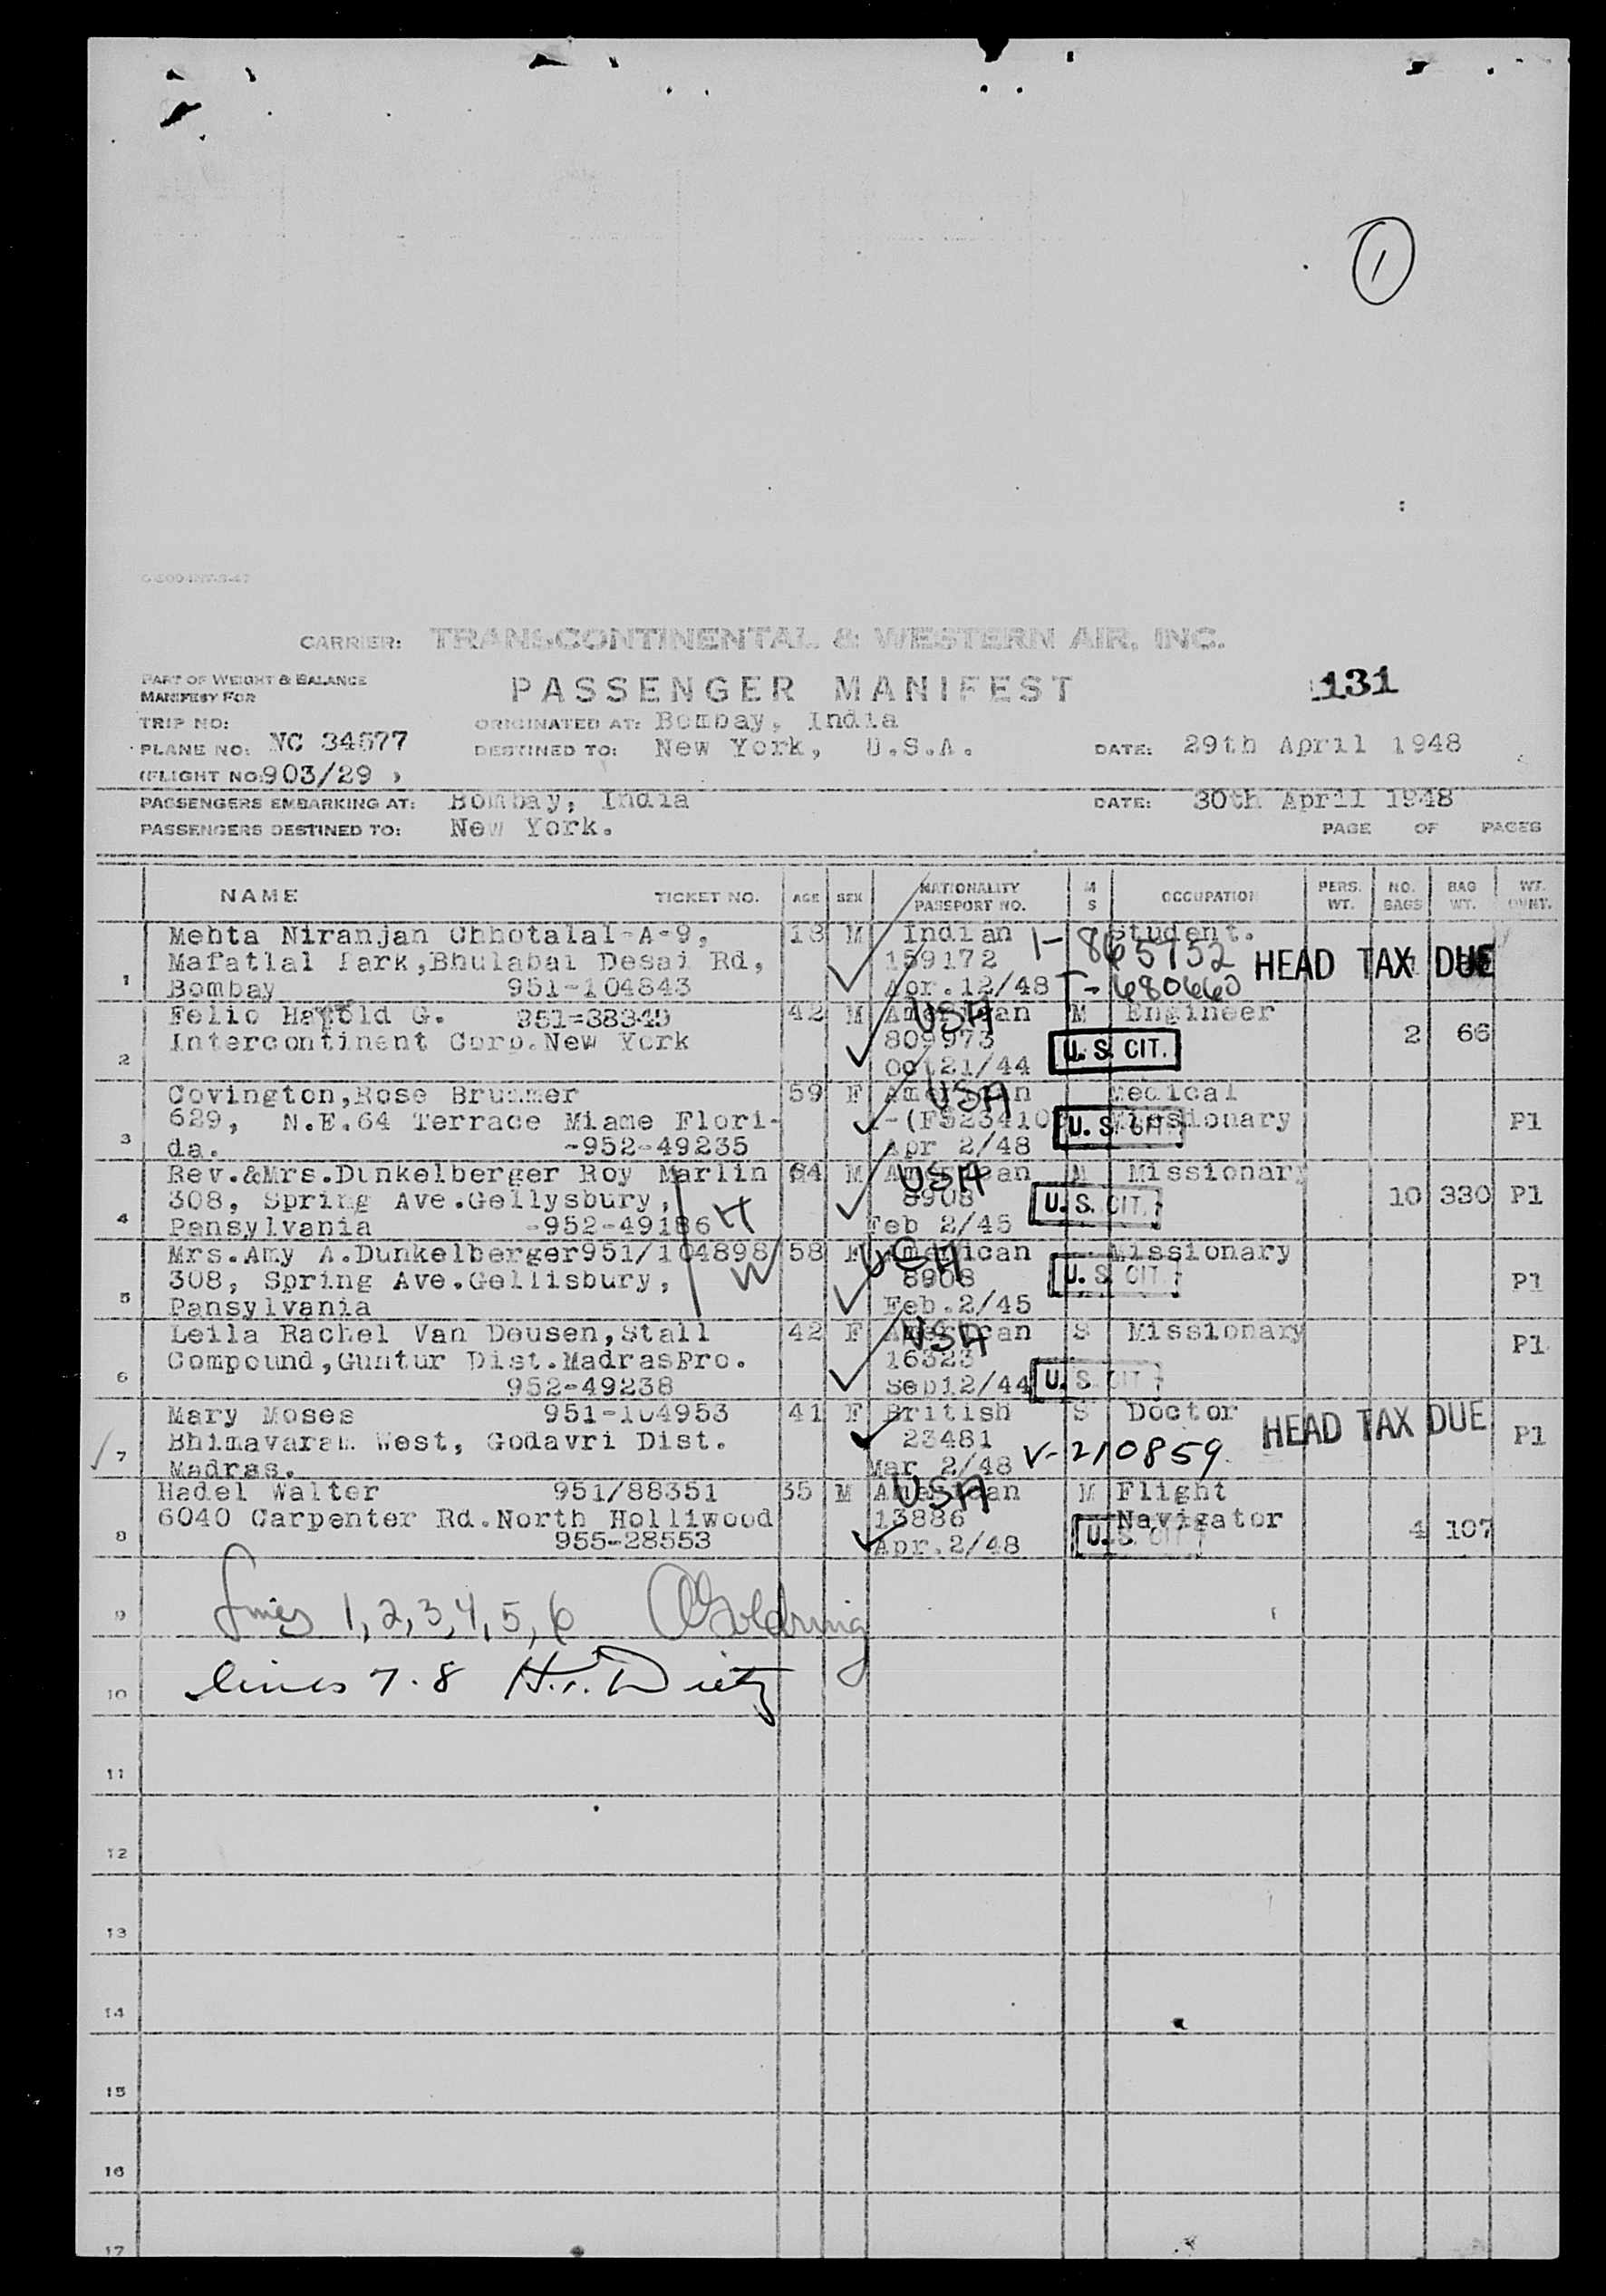 1
CARRIER: TRANSCONTINENTAL & WESTERN AIR, INC.
PART OF WEIGHT & BALANCE
MANIFEST FOR
PASSENGER MANIFEST
131
TRIP NO:
ORIGINATED AT: Bombay, India
PLANE NO: NC 34577
DESTINED TO: New York, U.S.A.
DATE: 29th April 1948
(FLIGHT NO: 903/29 )
PASSENGERS EMBARKING AT: Bombay, India
DATE: 30th April 1948
PASSENGERS DESTINED TO: New York.
PAGE OF PAGES
NAME TICKET NO. AGE SEX NATIONALITY PASSPORT NO. M S OCCUPATION PERS. WT. NO. BAGS BAG WT. WT. CVNT.
Mehta Niranjan Chhotalal-A-9, 18 M Indian Student.
1-865752
Mafatlal Park,Bhulabai Desai Rd, 159172 HEAD TAX DUE
1 Bombay 951-104843 Apr.12/48 T-680660
Felio Harold G. 951=38345 42 M American USA M Engineer
Intercontinent Corp.New York 809973 U.S. CIT. 2 66
2 Oct21/44
Covington,Rose Brummer 59 F American USA Medical
629, N.E.64 Terrace Miame Flori- -(F523410 U.S. CIT. Missionary P1
3 da. -952-49235 Apr 2/48
Rev.&Mrs.Dunkelberger Roy Marlin 64 M American USA M Missionary
308, Spring Ave.Gellysbury, 8908 U.S. CIT. 10 330 P1
4 Pensylvania -952-49186 H Feb 2/45
Mrs.Amy A.Dunkelberger951/104898 58 F American USA Missionary
308, Spring Ave.Gellisbury, W 8908 U.S. CIT. P1
5 Pansylvania Feb.2/45
Leila Rachel Van Deusen,Stall 42 F American USA S Missionary
Compound,Guntur Dist.MadrasPro. 16323 P1
6 952-49238 Sep12/44 U.S. CIT.
Mary Moses 951-104953 41 F British S Doctor HEAD TAX DUE
Bhimavaram West, Godavri Dist. 23481 P1
7 Madras. Mar 2/48 V-210859
Hadel Walter 951/88351 35 M American USA M Flight
6040 Carpenter Rd.North Holliwood 13886 Navigator 4 107
8 955-28553 Apr.2/48 U.S. CIT.
9 Lines 1,2,3,4,5,6 Goldring
10 lines 7.8 H.. Dietz
11
12
13
14
15
16
17